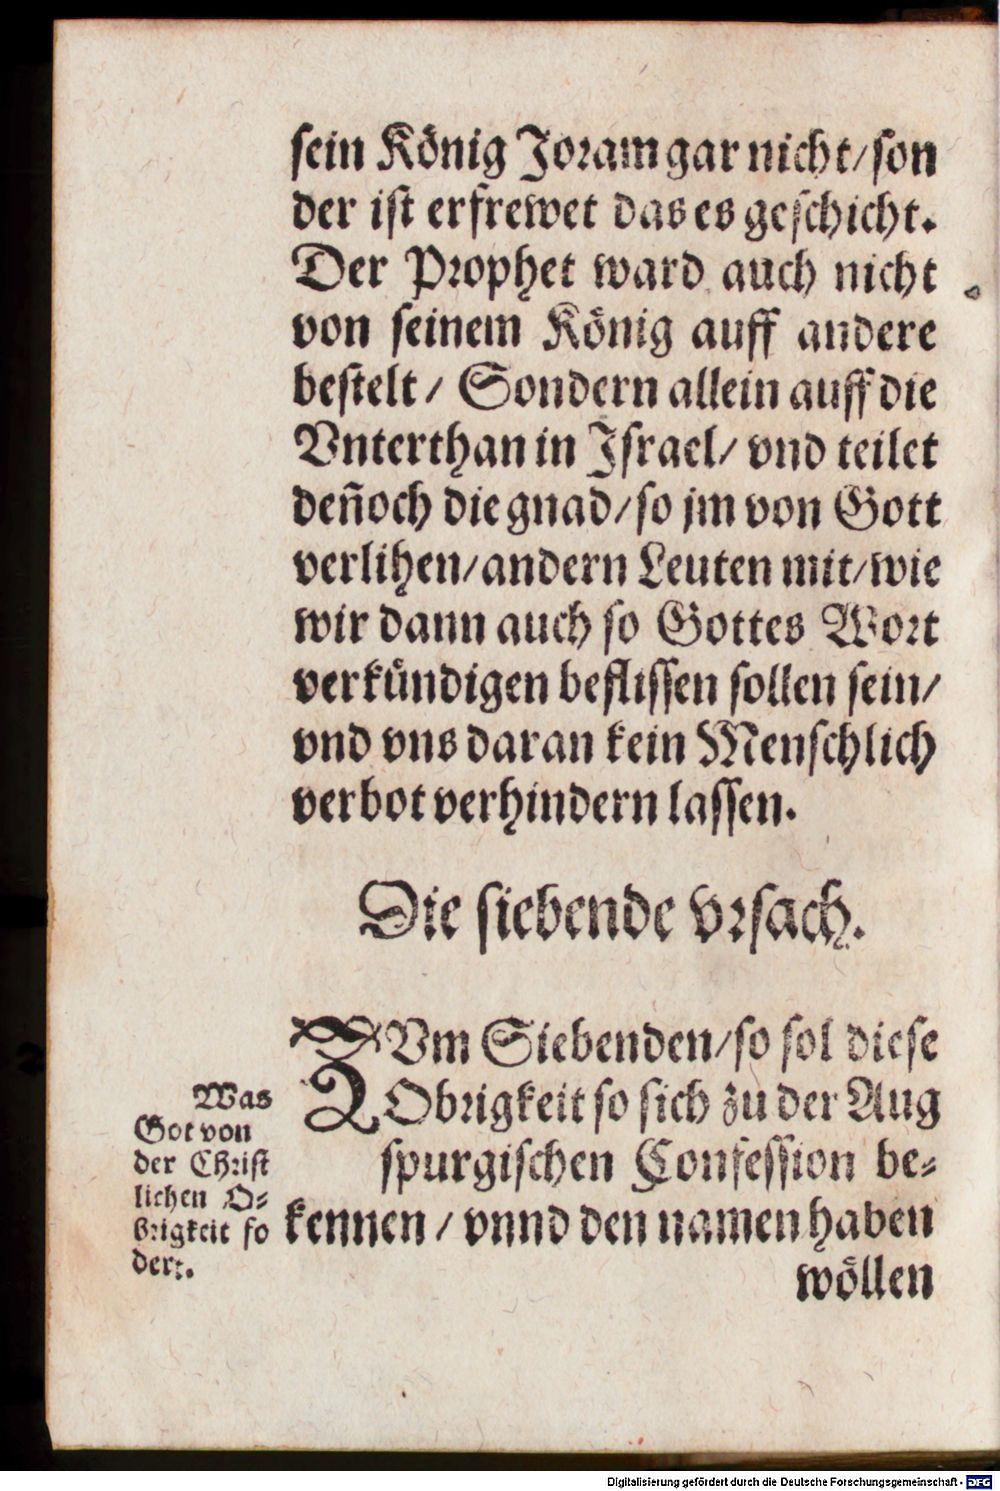 sein König Joram gar nicht/ son
der ist erfrewet das es geschicht.
Der Prophet ward auch nicht
von seinem König auff andere
bestelt/ Sondern allein auff die
Vnterthan in Israel/ vnd teilet
deñoch die gnad/ so jm von Gott
verlihen/ andern Leuten mit/ wie
wir dann auch so Gottes Wort
verkündigen beflissen sollen sein/
vnd vns daran kein Menschlich
verbot verhindern lassen.
Die siebende vrsach.
ZVm Siebenden/ so sol diese
Obrigkeit so sich zu der Aug
spurgischen Confession be-
kennen/ vnnd den namen haben
wöllen
Was
Got von
der Christ
lichen O-
brigkeit fo
dert.
Digitalisierung gefördert durch die Deutsche Forschungsgemeinschaft - DFG